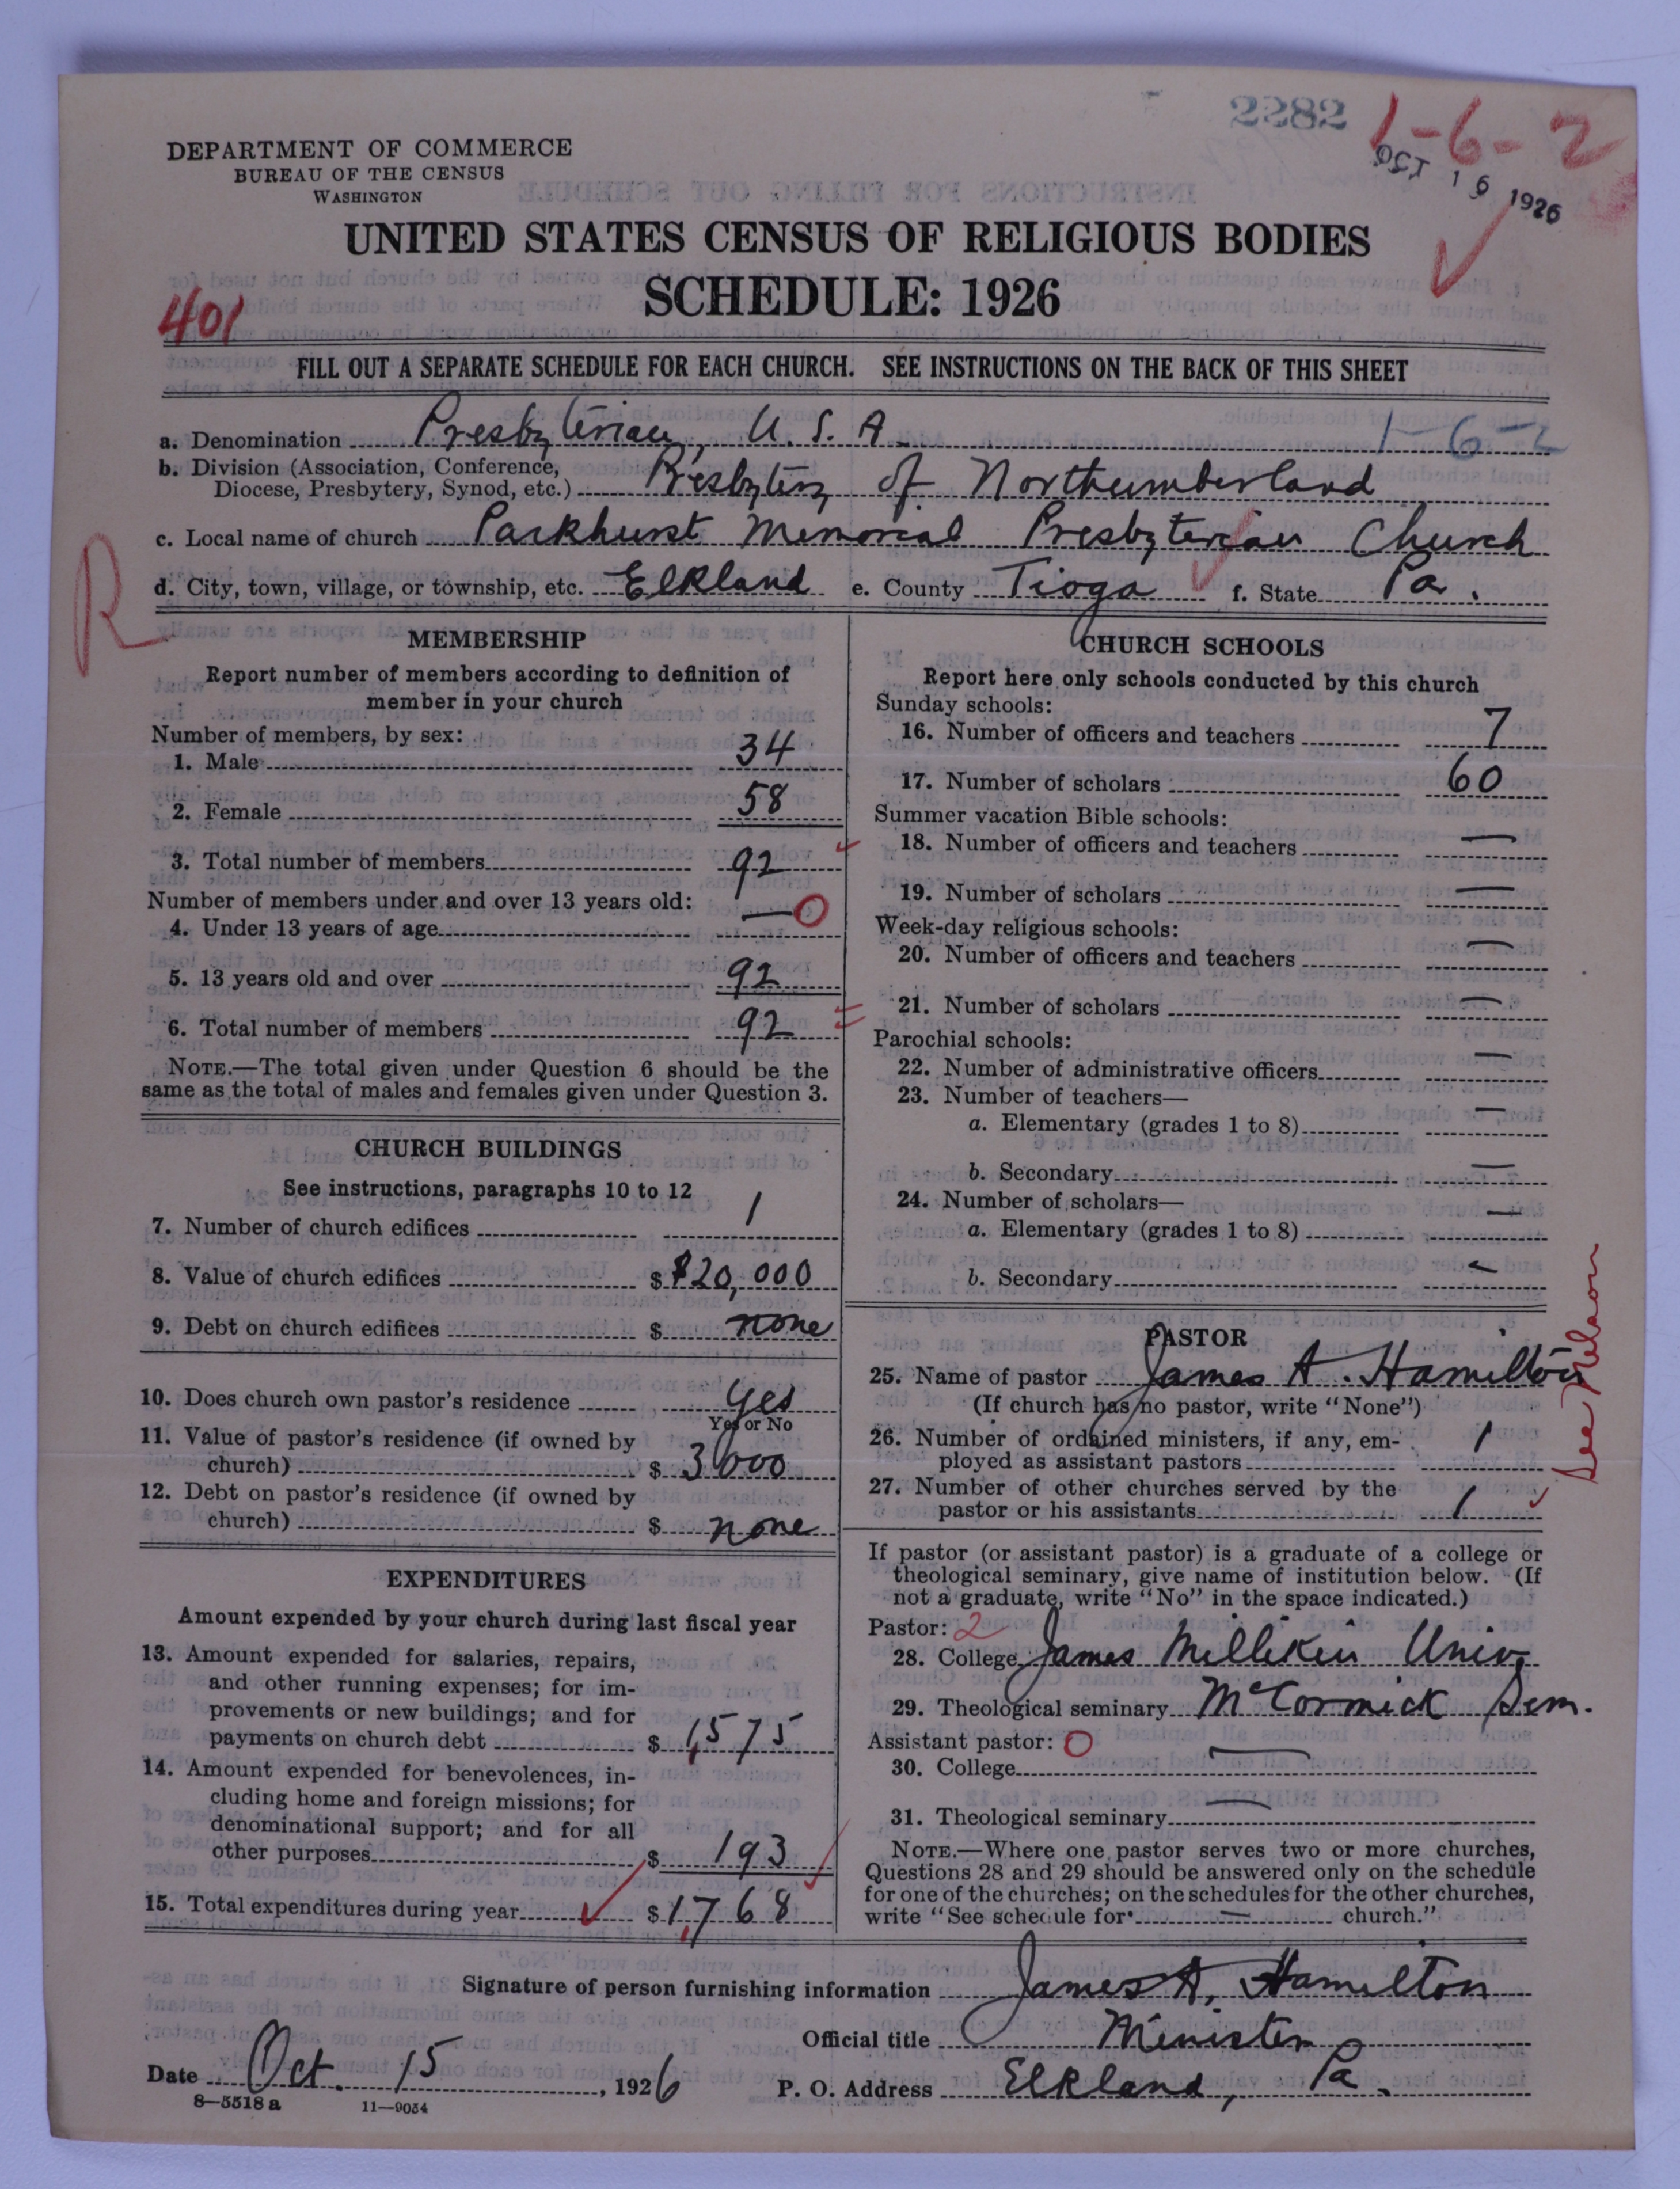 2282
1-6-2
OCT 16 1926
DEPARTMENT OF COMMERCE
BUREAU OF THE CENSUS
WASHINGTON
UNITED STATES CENSUS OF RELIGIOUS BODIES
SCHEDULE: 1926
401
FILL OUT A SEPARATE SCHEDULE FOR EACH CHURCH. SEE INSTRUCTIONS ON THE BACK OF THIS SHEET
a. Denomination Presbyterian, U.S.A. 1-6-2
b. Division (Association, Conference,
Diocese, Presbytery, Synod, etc.) Presbytery of Northumberland
c. Local name of church Parkhurst Memorial Presbyterian Church
d. City, town, village, or township, etc. Elkland e. County Tioga f. State Pa.
R
MEMBERSHIP
Report number of members according to definition of
member in your church
Number of members, by sex:
1. Male 34
2. Female 58
3. Total number of members 92
Number of members under and over 13 years old:
4. Under 13 years of age — 0
5. 13 years old and over 92
6. Total number of members 92
NOTE.—The total given under Question 6 should be the
same as the total of males and females given under Question 3.
CHURCH BUILDINGS
See instructions, paragraphs 10 to 12
7. Number of church edifices 1
8. Value of church edifices $ $20,000
9. Debt on church edifices $ none
10. Does church own pastor's residence yes
Yes or No
11. Value of pastor's residence (if owned by
church) $ 3000
12. Debt on pastor's residence (if owned by
church) $ none
EXPENDITURES
Amount expended by your church during last fiscal year
13. Amount expended for salaries, repairs,
and other running expenses; for im-
provements or new buildings; and for
payments on church debt $ 1,575
14. Amount expended for benevolences, in-
cluding home and foreign missions; for
denominational support; and for all
other purposes $ 193
15. Total expenditures during year $ 1,768
CHURCH SCHOOLS
Report here only schools conducted by this church
Sunday schools:
16. Number of officers and teachers 7
17. Number of scholars 60
Summer vacation Bible schools:
18. Number of officers and teachers —
19. Number of scholars —
Week-day religious schools:
20. Number of officers and teachers —
21. Number of scholars —
Parochial schools:
22. Number of administrative officers —
23. Number of teachers—
a. Elementary (grades 1 to 8) —
b. Secondary —
24. Number of scholars—
a. Elementary (grades 1 to 8) —
b. Secondary —
PASTOR
25. Name of pastor James A. Hamilton
(If church has no pastor, write "None")
26. Number of ordained ministers, if any, em-
ployed as assistant pastors 1
27. Number of other churches served by the
pastor or his assistants 1
See Nelson
If pastor (or assistant pastor) is a graduate of a college or
theological seminary, give name of institution below. (If
not a graduate, write "No" in the space indicated.)
Pastor: 2
28. College James Millikin Univ.
29. Theological seminary McCormick Sem.
Assistant pastor: 0
30. College —
31. Theological seminary —
NOTE.—Where one pastor serves two or more churches,
Questions 28 and 29 should be answered only on the schedule
for one of the churches; on the schedules for the other churches,
write "See schedule for — church."
Signature of person furnishing information James A. Hamilton
Official title Minister
Date Oct. 15, 1926 P. O. Address Elkland, Pa.
8—5518 a 11—9054